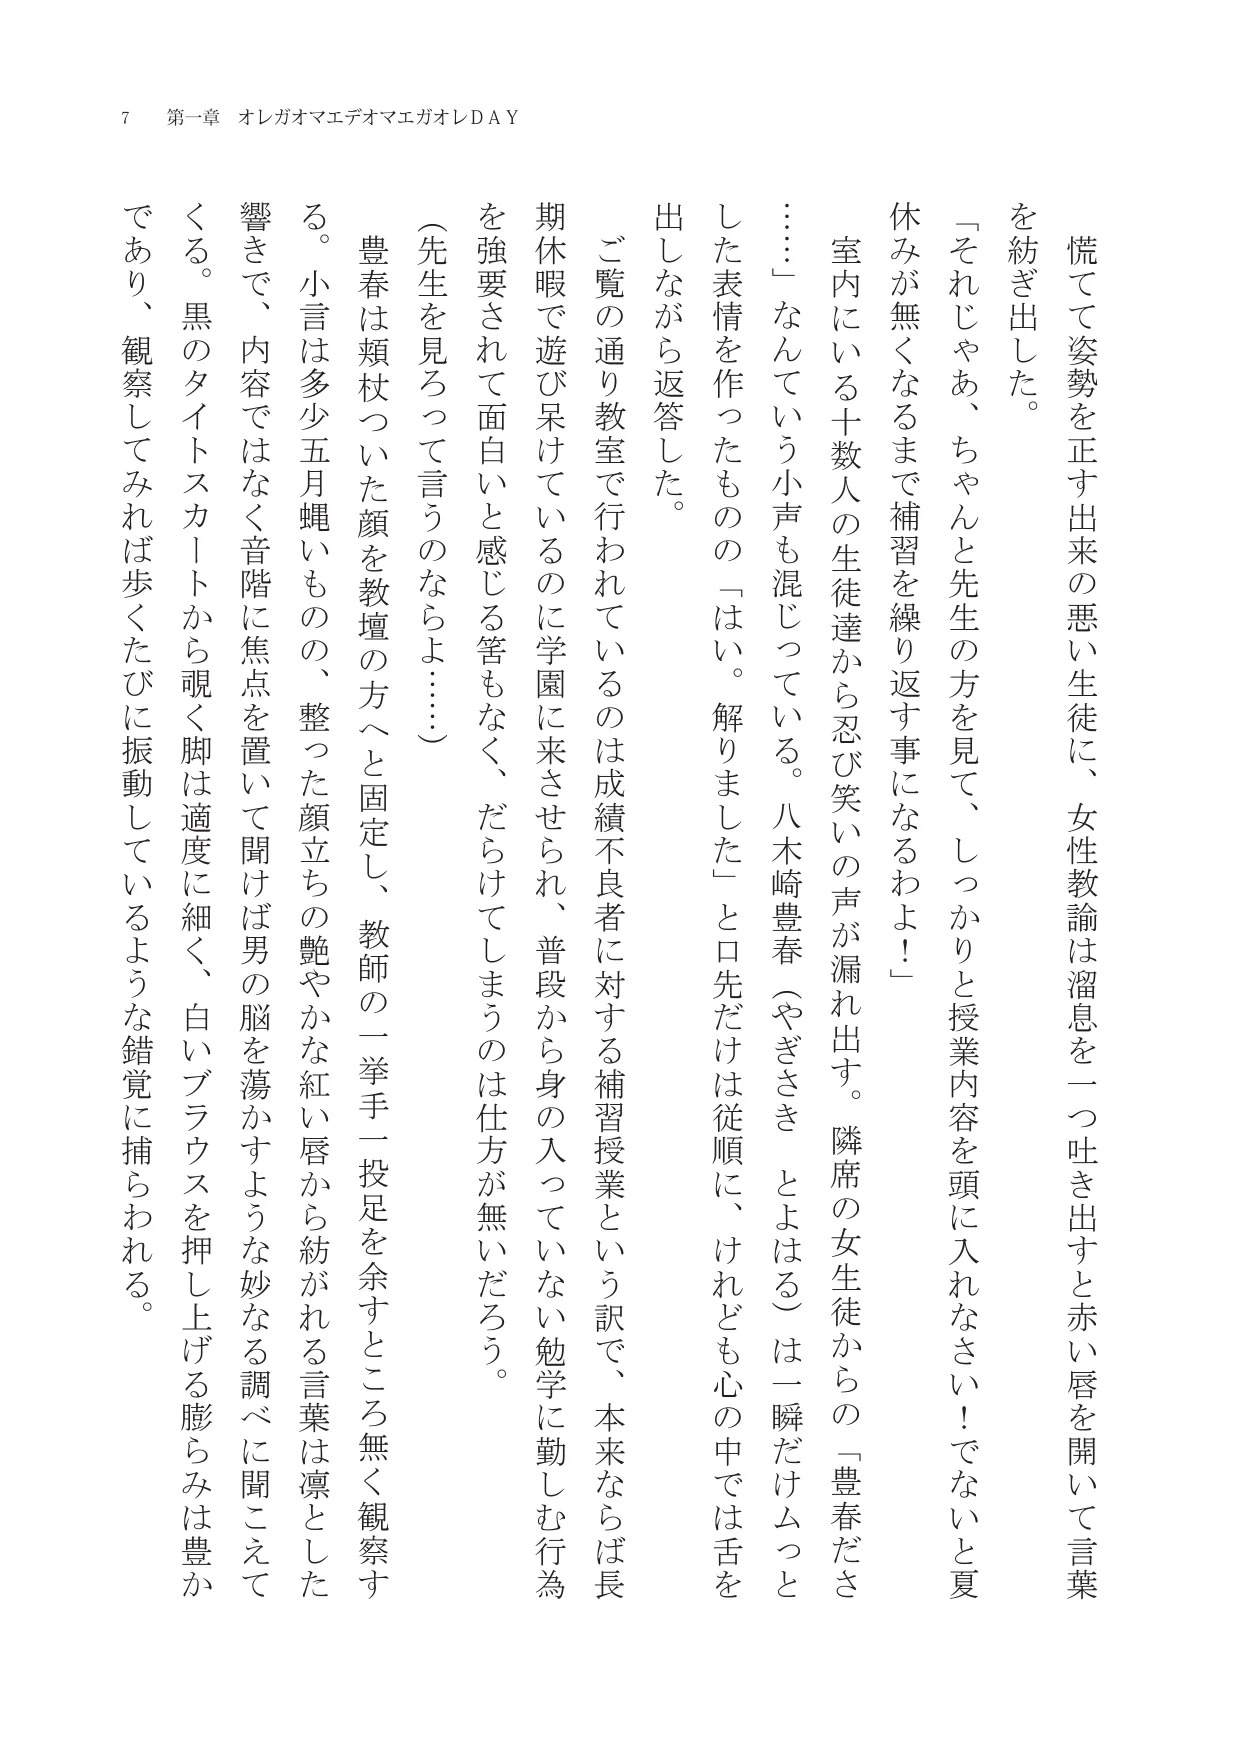 7　第一章　オレガオマエデオマエガオレDAY
　慌てて姿勢を正す出来の悪い生徒に、女性教諭は溜息を一つ吐き出すと赤い唇を開いて言葉
を紡ぎ出した。
「それじゃあ、ちゃんと先生の方を見て、しっかりと授業内容を頭に入れなさい！でないと夏
休みが無くなるまで補習を繰り返す事になるわよ！」
　室内にいる十数人の生徒達から忍び笑いの声が漏れ出す。隣席の女生徒からの「豊春ださ
……」なんていう小声も混じっている。八木崎豊春（やぎさき　とよはる）は一瞬だけムっと
した表情を作ったものの「はい。解りました」と口先だけは従順に、けれども心の中では舌を
出しながら返答した。
　ご覧の通り教室で行われているのは成績不良者に対する補習授業という訳で、本来ならば長
期休暇で遊び呆けているのに学園に来させられ、普段から身の入っていない勉学に勤しむ行為
を強要されて面白いと感じる筈もなく、だらけてしまうのは仕方が無いだろう。
（先生を見ろって言うのならよ……）
　豊春は頬杖ついた顔を教壇の方へと固定し、教師の一挙手一投足を余すところ無く観察す
る。小言は多少五月蝿いものの、整った顔立ちの艶やかな紅い唇から紡がれる言葉は凛とした
響きで、内容ではなく音階に焦点を置いて聞けば男の脳を蕩かすような妙なる調べに聞こえて
くる。黒のタイトスカートから覗く脚は適度に細く、白いブラウスを押し上げる膨らみは豊か
であり、観察してみれば歩くたびに振動しているような錯覚に捕らわれる。